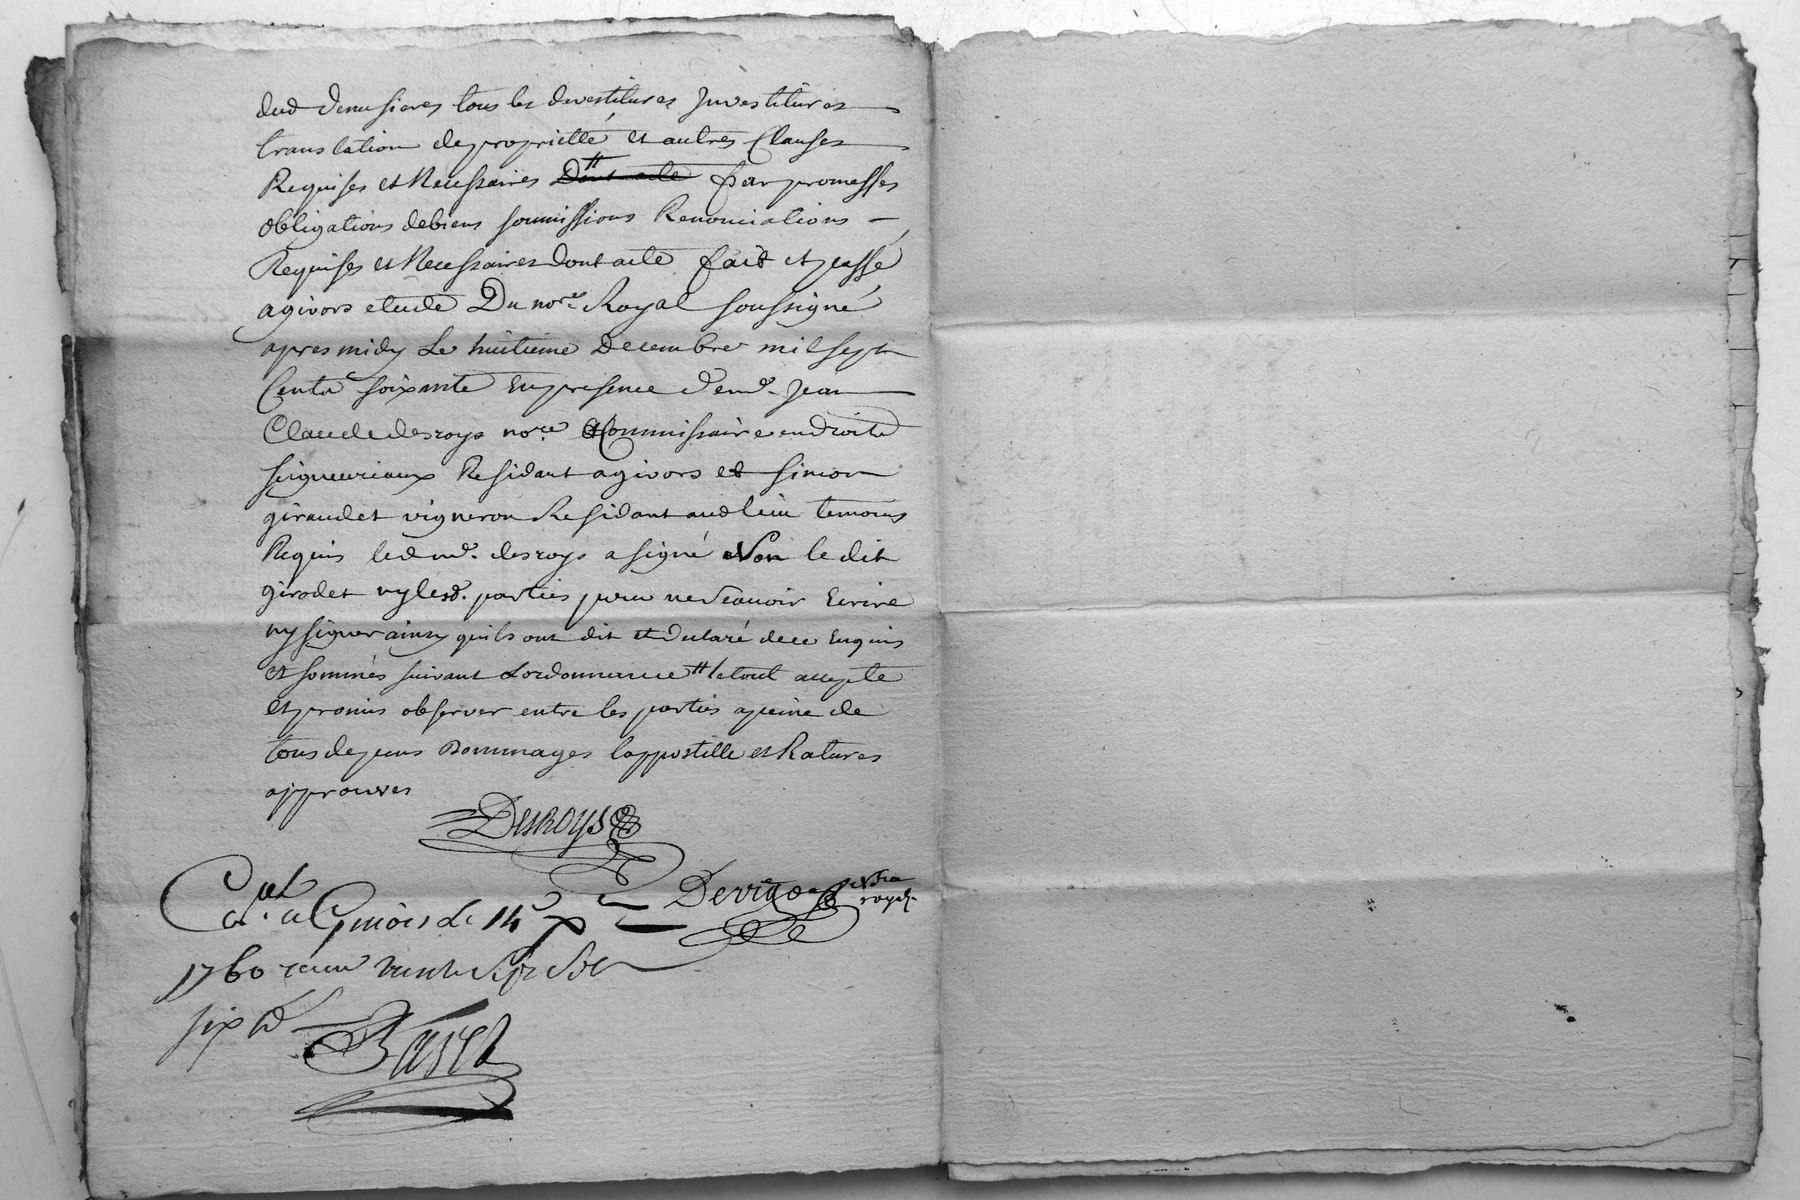 dud Venusieres tous les devestitures Investitures
translation de proprietté et autres Clauses
Requises et Necessaires Dont acte # par promesses
obligations de biens soumissions Renonciations
Requises et Necessaires dont acte fait et passé
a givors etude Du nore. Royal soussigné
apres midy Le huitieme Decembre mil sept
Cents soixante En presence d'emd. Jean
Claude desroys nore. Commissaire en droits
seigneuriaux Residant a givors et simon
giraudet vigneron Residant aud lieu temoins
Requis led md. desroys a signé Non le dit
girodet ny lesd. parties pour ne scavoir Ecrire
ny signer ainsy quils ont dit et declaré de ce Enquis
et sommés suivant Lordonnance # le tout accepté
et promis observer entre les parties a peine de
tous depens Dommages lappostille et Ratures
approuves
Desroys
Devigo nore royal
le 14e Xe
1760 recu sept sols
six d